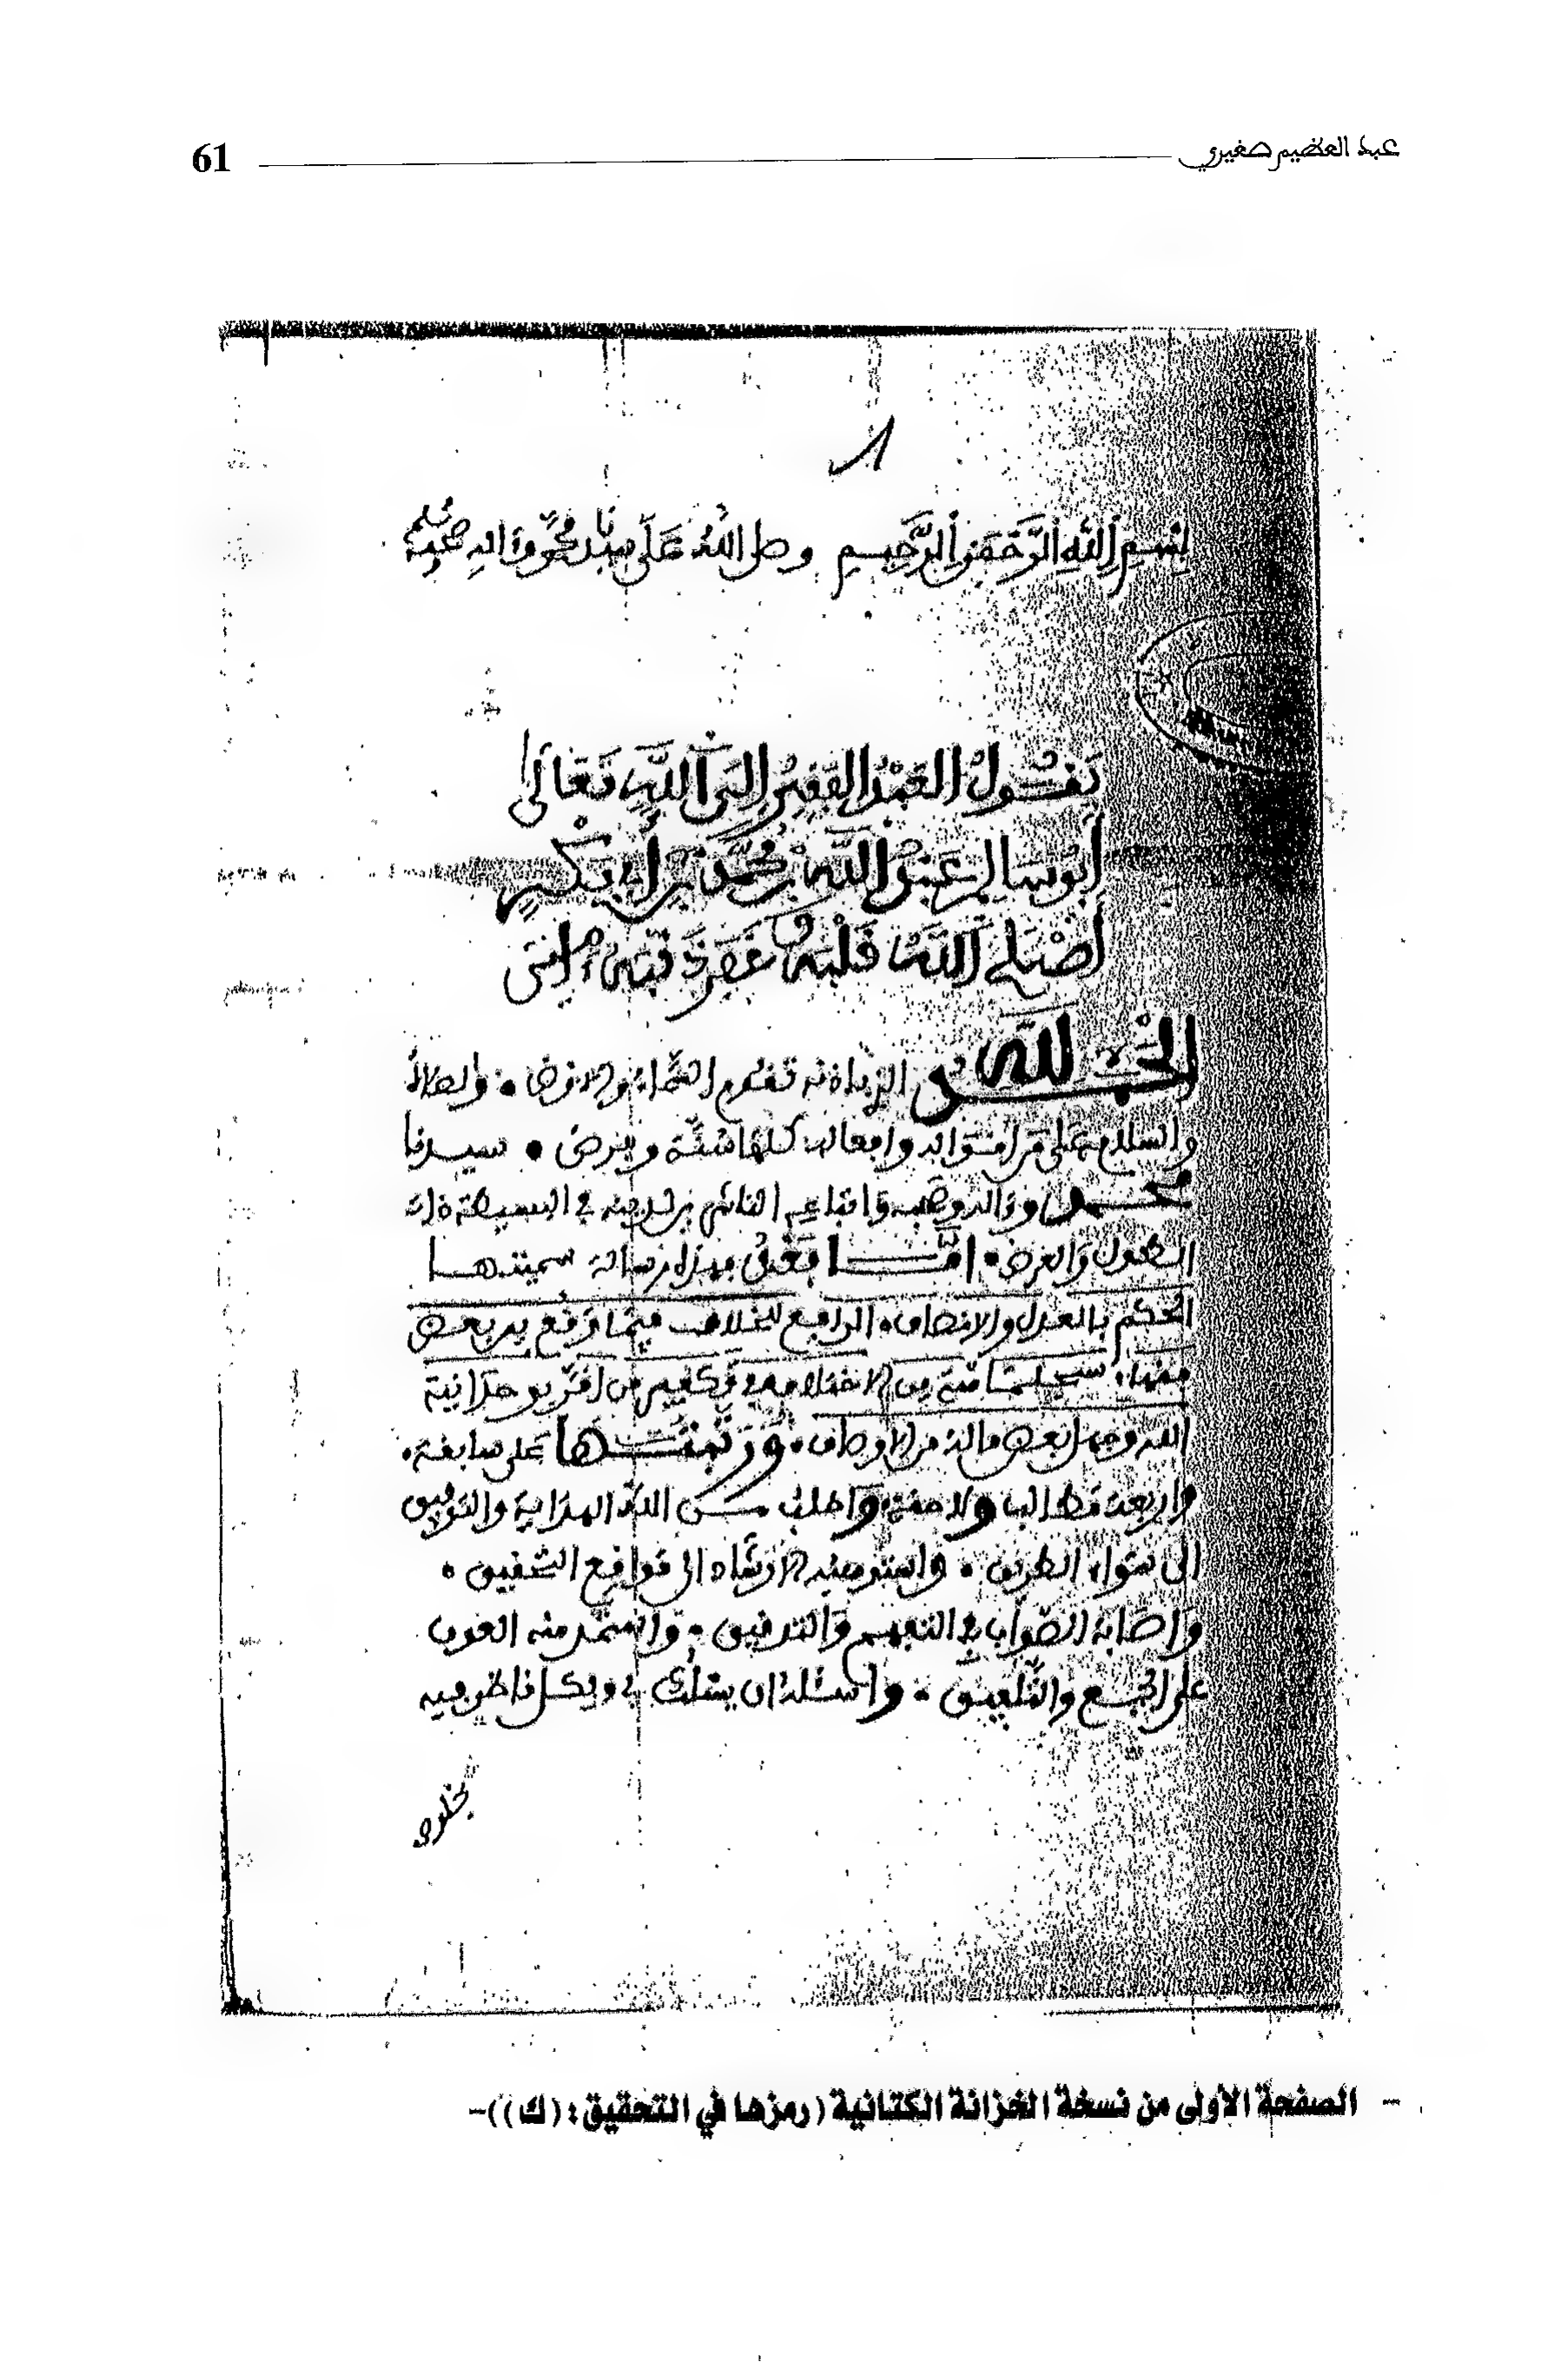 عبد العظيم صغيري
61
بسم الله الرحمن الرحيم وصلى الله على سيدنا محمد وءاله وصحبه وسلم
يقول العبد الفقير إلى الله تعالى
أبو سالم عبد الله بن محمد بن أبي بكر
أصلح الله قلبه وغفر ذنبه ءامين
الحمد لله الذي باذنه تقوم السماء والارض • والصلاة
والسلام على من اقواله وافعاله كلها سنة وفرض • سيدنا
محمد وءاله وصحبه واتباعه الناشرين لدينه في البسيطة ذات
الطول والعرض • اما بعد فهذه رسالة سميتها
الحكم بالعدل والانصاف • الرافع للخلاف فيما وقع بين بعض
فقهاء سجلماسة من الاختلاف • في تكفير من اقر بوحدانية
الله وجهل بعض ماله من الاوصاف • ورتبتها على سابقة •
واربعة مطالب ولاحقة • واطلب من الله الهداية والتوفيق
الى سواء الطريق • والتمس منه الارشاد الى مواقع التحقيق •
واصابة الصواب في التفهيم والتدقيق • واستمد منه العون
على الجمع والتلفيق • واسئله ان يسلك بي وبكل ناظر فيه
- الصفحة الأولى من نسخة الخزانة الكتانية (رمزها في التحقيق: (ك))-